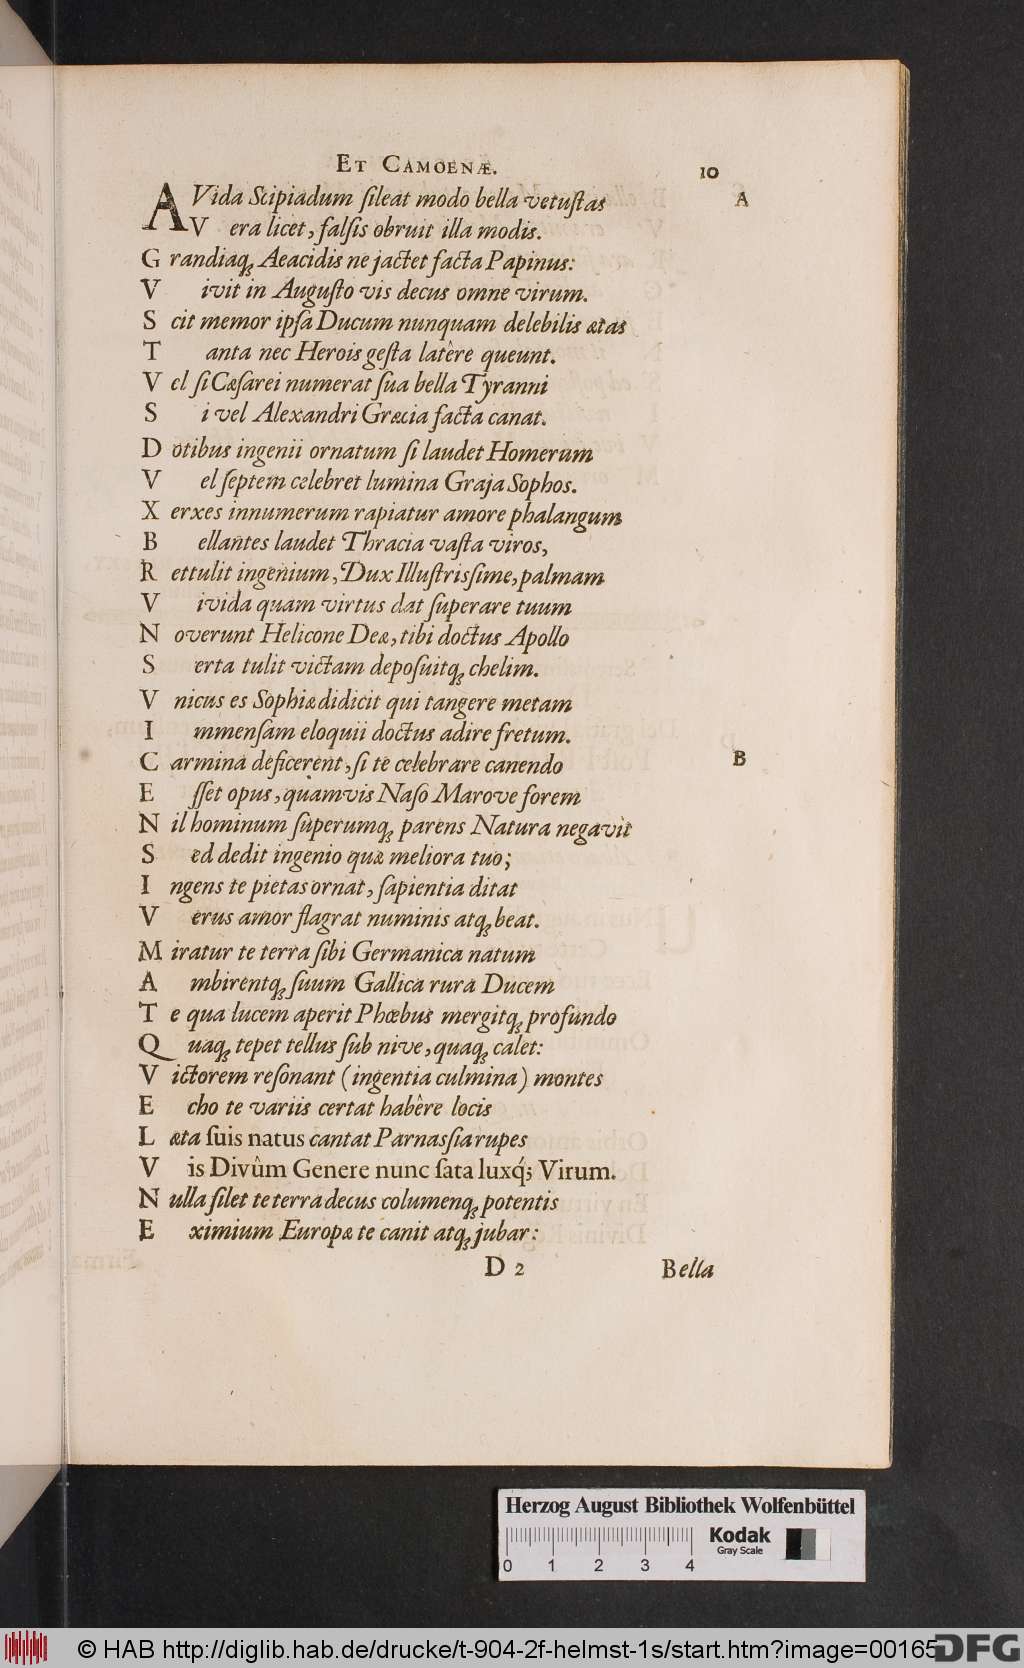 ET CAMOENÆ. 10
AVida Scipiadum ſileat modo bella vetuſtas A
V era licet, falſis obruit illa modis.
G randiaq; Aeacidis ne jactet facta Papinus:
V ivit in Auguſto vis decus omne virum.
S cit memor ipſa Ducum nunquam delebilis ætas
T anta nec Herois geſta latêre queunt.
V el ſi Cæſarei numerat ſua bella Tyranni
S i vel Alexandri Græcia facta canat.
D otibus ingenii ornatum ſi laudet Homerum
V el ſeptem celebret lumina Graja Sophos.
X erxes innumerum rapiatur amore phalangum
B ellantes laudet Thracia vaſta viros,
R ettulit ingenium, Dux Illuſtrisſime, palmam
V ivida quam virtus dat ſuperare tuum
N overunt Helicone Deæ, tibi doctus Apollo
S erta tulit victam depoſuitq; chelim.
V nicus es Sophiæ didicit qui tangere metam
I mmenſam eloquii doctus adire fretum.
C armina deficerent, ſi te celebrare canendo B
E ſſet opus, quamvis Naſo Marove forem
N il hominum ſuperumq; parens Natura negavit
S ed dedit ingenio quæ meliora tuo;
I ngens te pietas ornat, ſapientia ditat
V erus amor flagrat numinis atq; beat.
M iratur te terra ſibi Germanica natum
A mbirentq; ſuum Gallica rura Ducem
T e qua lucem aperit Phœbus mergitq; profundo
Q uaq; tepet tellus ſub nive, quaq; calet:
V ictorem reſonant (ingentia culmina) montes
E cho te variis certat habêre locis
L æta ſuis natus cantat Parnasſia rupes
V is Divûm Genere nunc ſata luxq́; Virum.
N ulla ſilet te terra decus columenq; potentis
E ximium Europæ te canit atq; jubar:
D 2 Bella
Herzog August Bibliothek Wolfenbüttel
Kodak
Gray Scale
0 1 2 3 4
© HAB http://diglib.hab.de/drucke/t-904-2f-helmst-1s/start.htm?image=00165
DFG